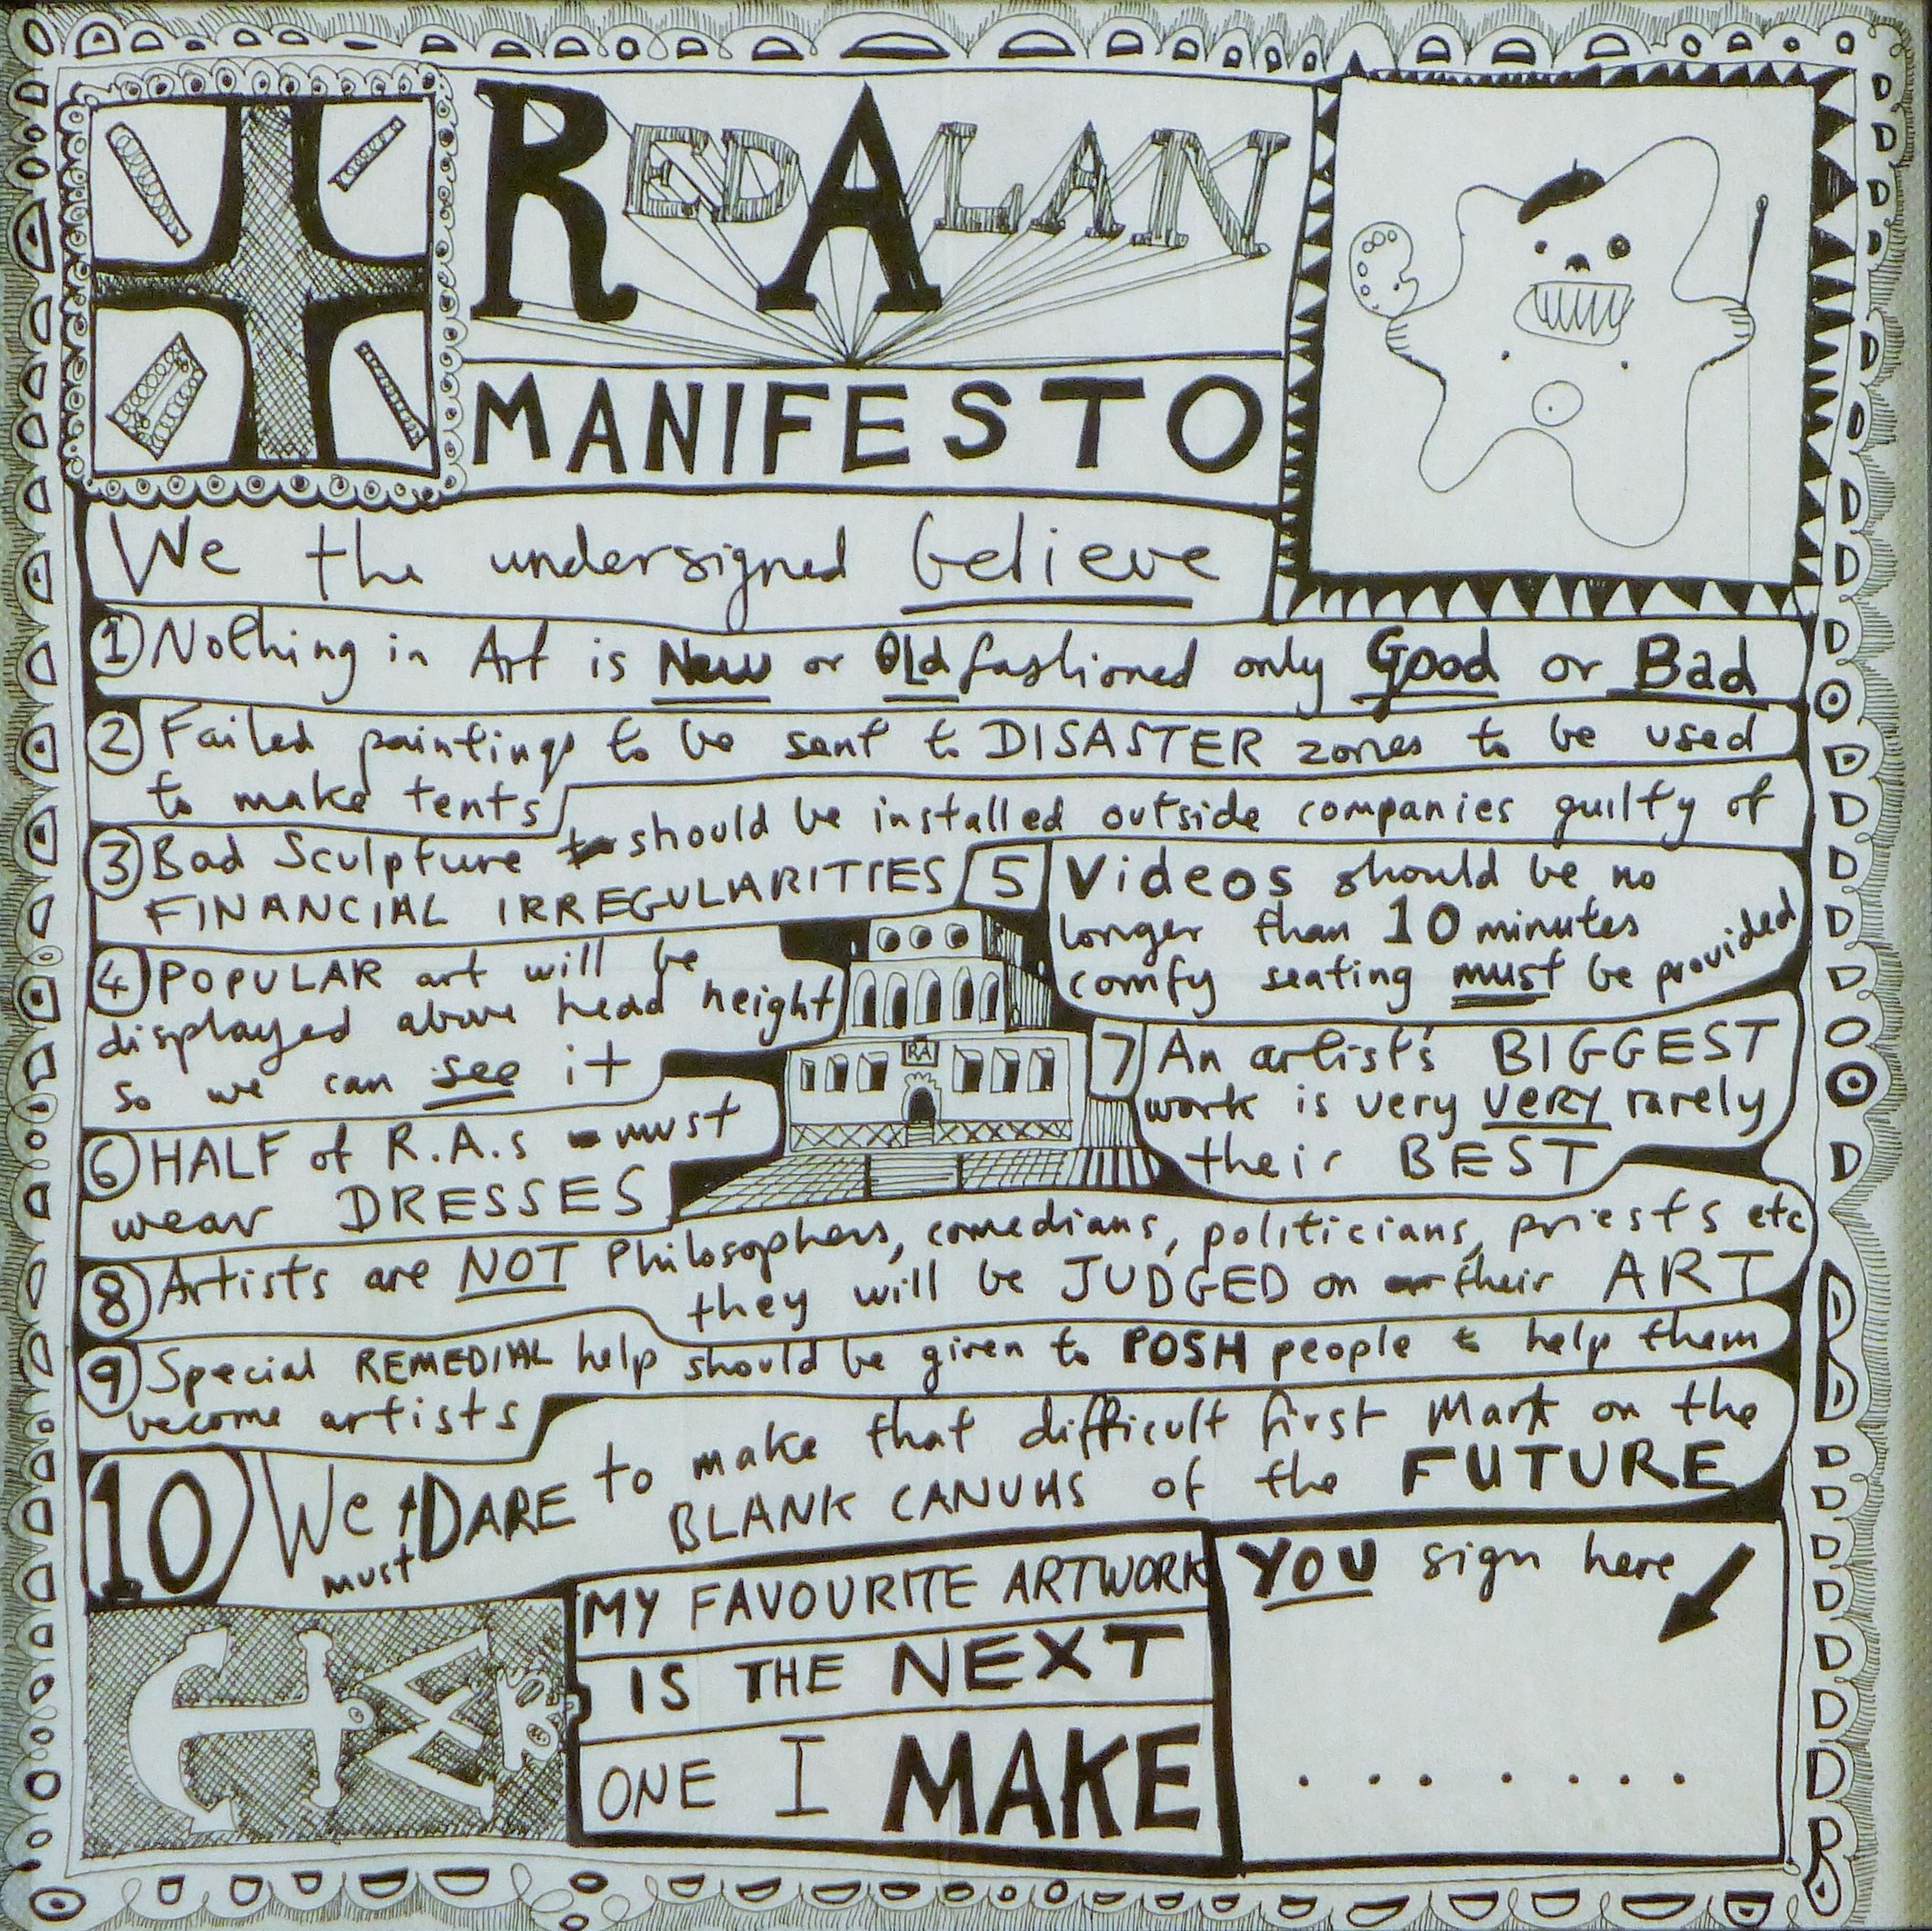 RED ALAN
MANIFESTO
We the undersigned believe
1 Nothing in Art is New or Old fashioned only Good or Bad
2 Failed paintings to be sent to DISASTER zones to be used
to make tents
3 Bad Sculpture should be installed outside companies guilty of
FINANCIAL IRREGULARITIES
4 POPULAR art will be
displayed above head height
so we can see it
5 Videos should be no
longer than 10 minutes
comfy seating must be provided
RA
6 HALF of R.A.s must
wear DRESSES
7 An artist's BIGGEST
work is very VERY rarely
their BEST
8 Artists are NOT Philosophers, comedians, politicians, priests etc
they will be JUDGED on their ART
9 Special REMEDIAL help should be given to POSH people to help them
become artists
10 We must DARE to make that difficult first Mark on the
BLANK CANVAS of the FUTURE
MY FAVOURITE ARTWORK
IS THE NEXT
ONE I MAKE
YOU sign here
. . . . . . . .